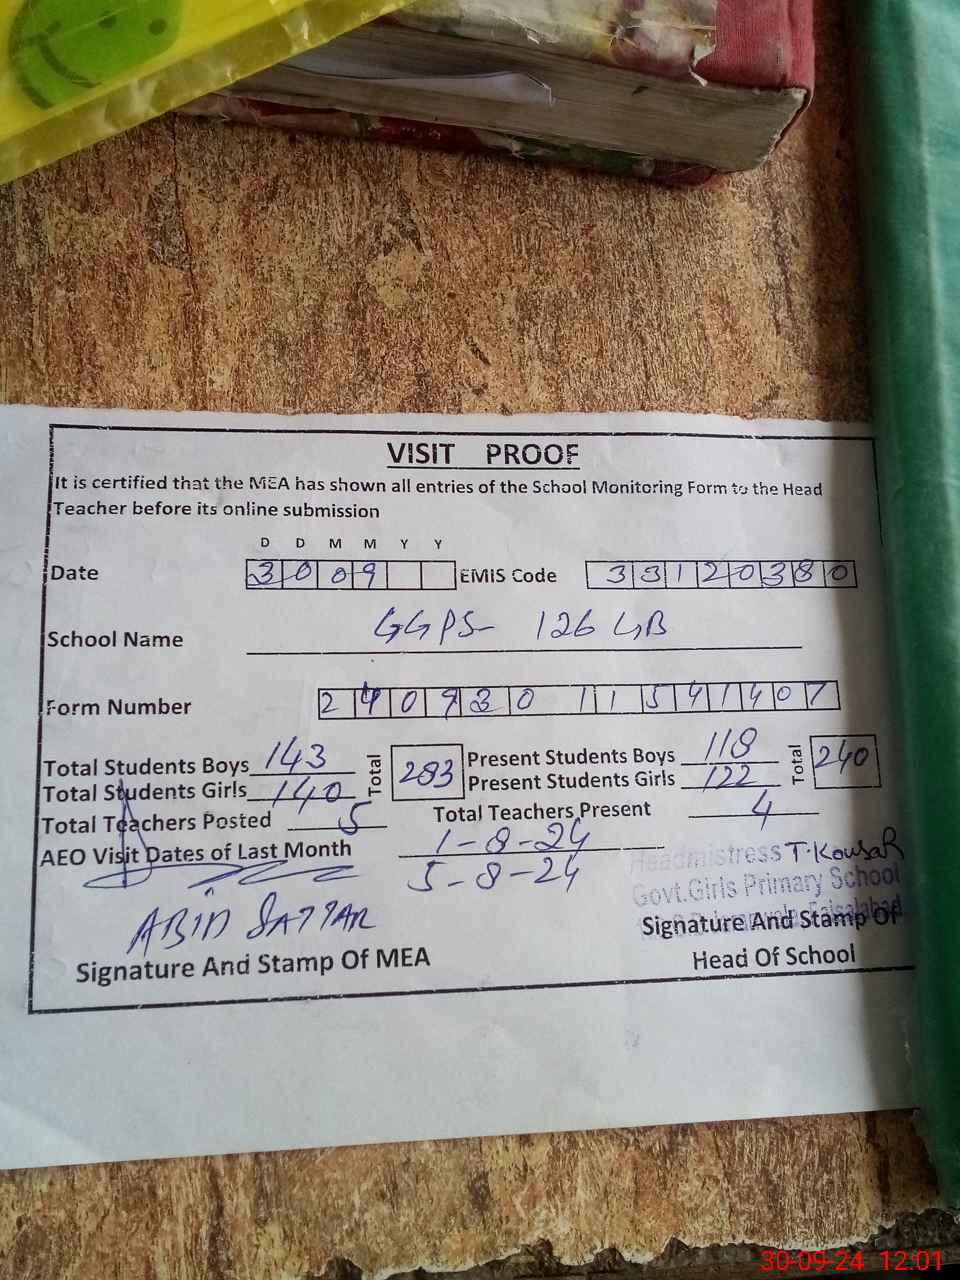 VISIT PROOF
It is certified that the MEA has shown all entries of the School Monitoring Form to the Head
Teacher before its online submission
D D M M Y Y
Date 3 0 0 9 EMIS Code 3 3 1 2 0 3 8 0
School Name GGPS- 126 GB
Form Number 2 4 0 9 3 0 1 1 5 4 1 4 0 7
Total Students Boys 143 Total 283 Present Students Boys 118 Total 240
Total Students Girls 140 Present Students Girls 122
Total Teachers Posted 5 Total Teachers Present 4
AEO Visit Dates of Last Month 1-8-24
5-8-24
Headmistress T.KousaR
Govt.Girls Primary School
Faisalabad
ABID SATTAR
Signature And Stamp Of MEA
Signature And Stamp Of
Head Of School
30-09-24 12:01